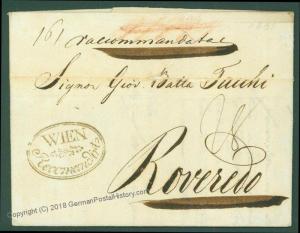 161
raccommandatae
Signor Giov. Batta Tacchi
WIEN
Recomandirt
Roveredo
Copyright © 2018 GermanPostalHistory.com